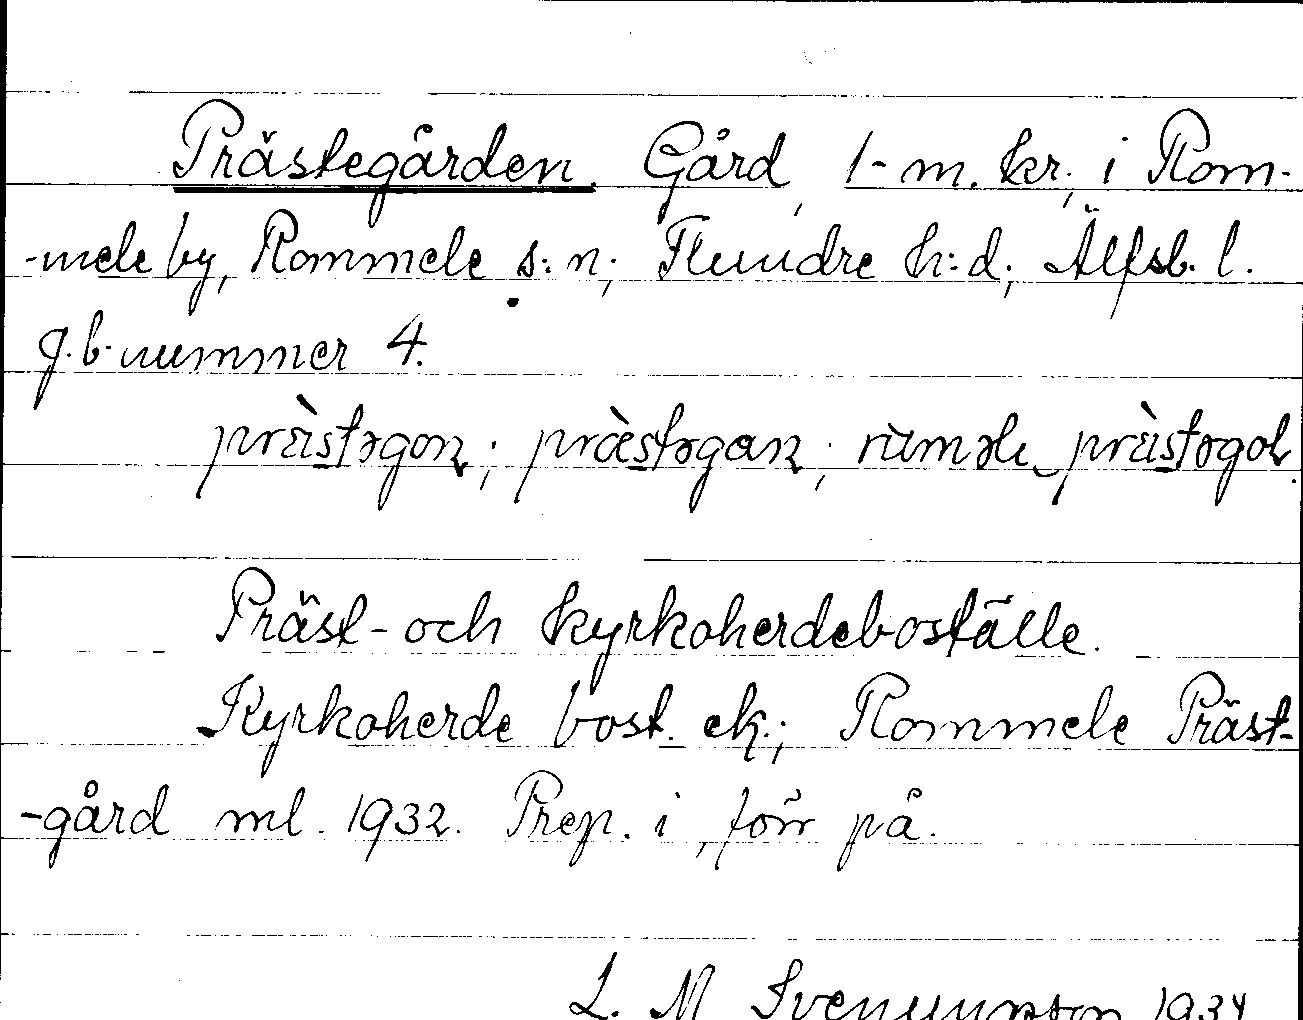 Prästegården. Gård, 1-m. kr; i Rom-
-mele by, Rommele s:n; Flundre h:d; Älfsb. l.
g.b.nummer 4.
prä̀stəgoɲ; præ̀stəgaɲ; rùmələ prä̀stəgoɫ.
Präst- och kyrkoherdeboställe.
Kyrkoherde bost. ek.; Rommele Präst-
-gård ml. 1932. Prep. i, förr på.
L. M Svenungsson 1934